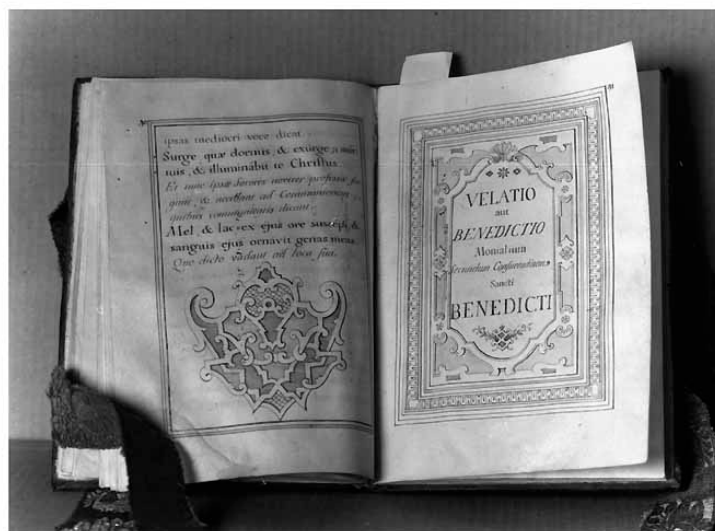 ipsas mediocri voce dicat.
Surge quæ dormis, & exurge a mor
tuis, & illuminabit te Christus
Et tunc ipsæ Sorores
& accedant ad Communionem
quibus communicatis dicant.
Mel, & lac ex ejus ore suscepi, &
sanguis ejus ornavit genas meas.
Quo dicto vadant ad loca sua.
VELATIO
aut
BENEDICTIO
Monialium
Secundum Consuetudinem
Sancti
BENEDICTI